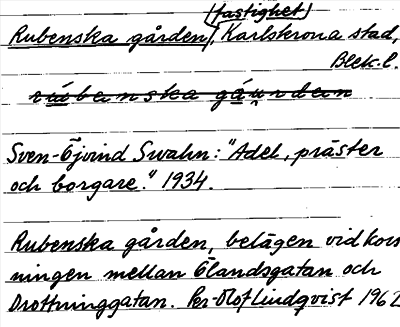 fastighet
Rubenska gården, Karlskrona stad,
Blek.l.
rúbenska gåurden
Sven-Öjvind Swahn: "Adel, präster
och borgare." 1934.
Rubenska gården, belägen vid kors
ningen mellan Ölandsgatan och
Drottninggatan. Per-Olof Lundqvist 1962